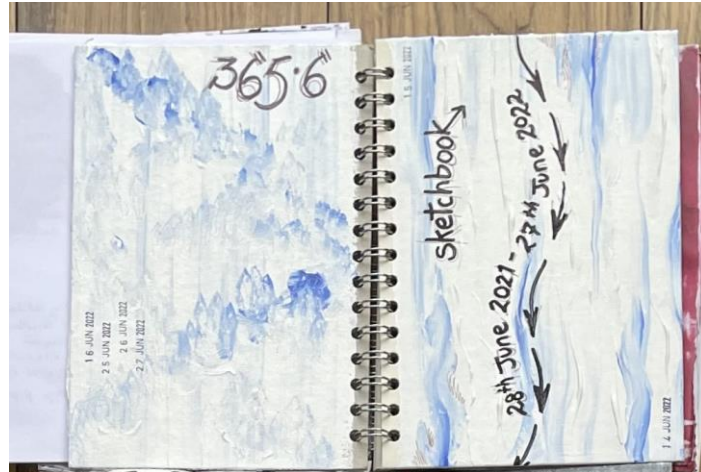 365.6"
16 JUN 2022
25 JUN 2022
26 JUN 2022
27 JUN 2022
15 JUN 2022
sketchbook
28th June 2021 - 27th June 2022
14 JUN 2022